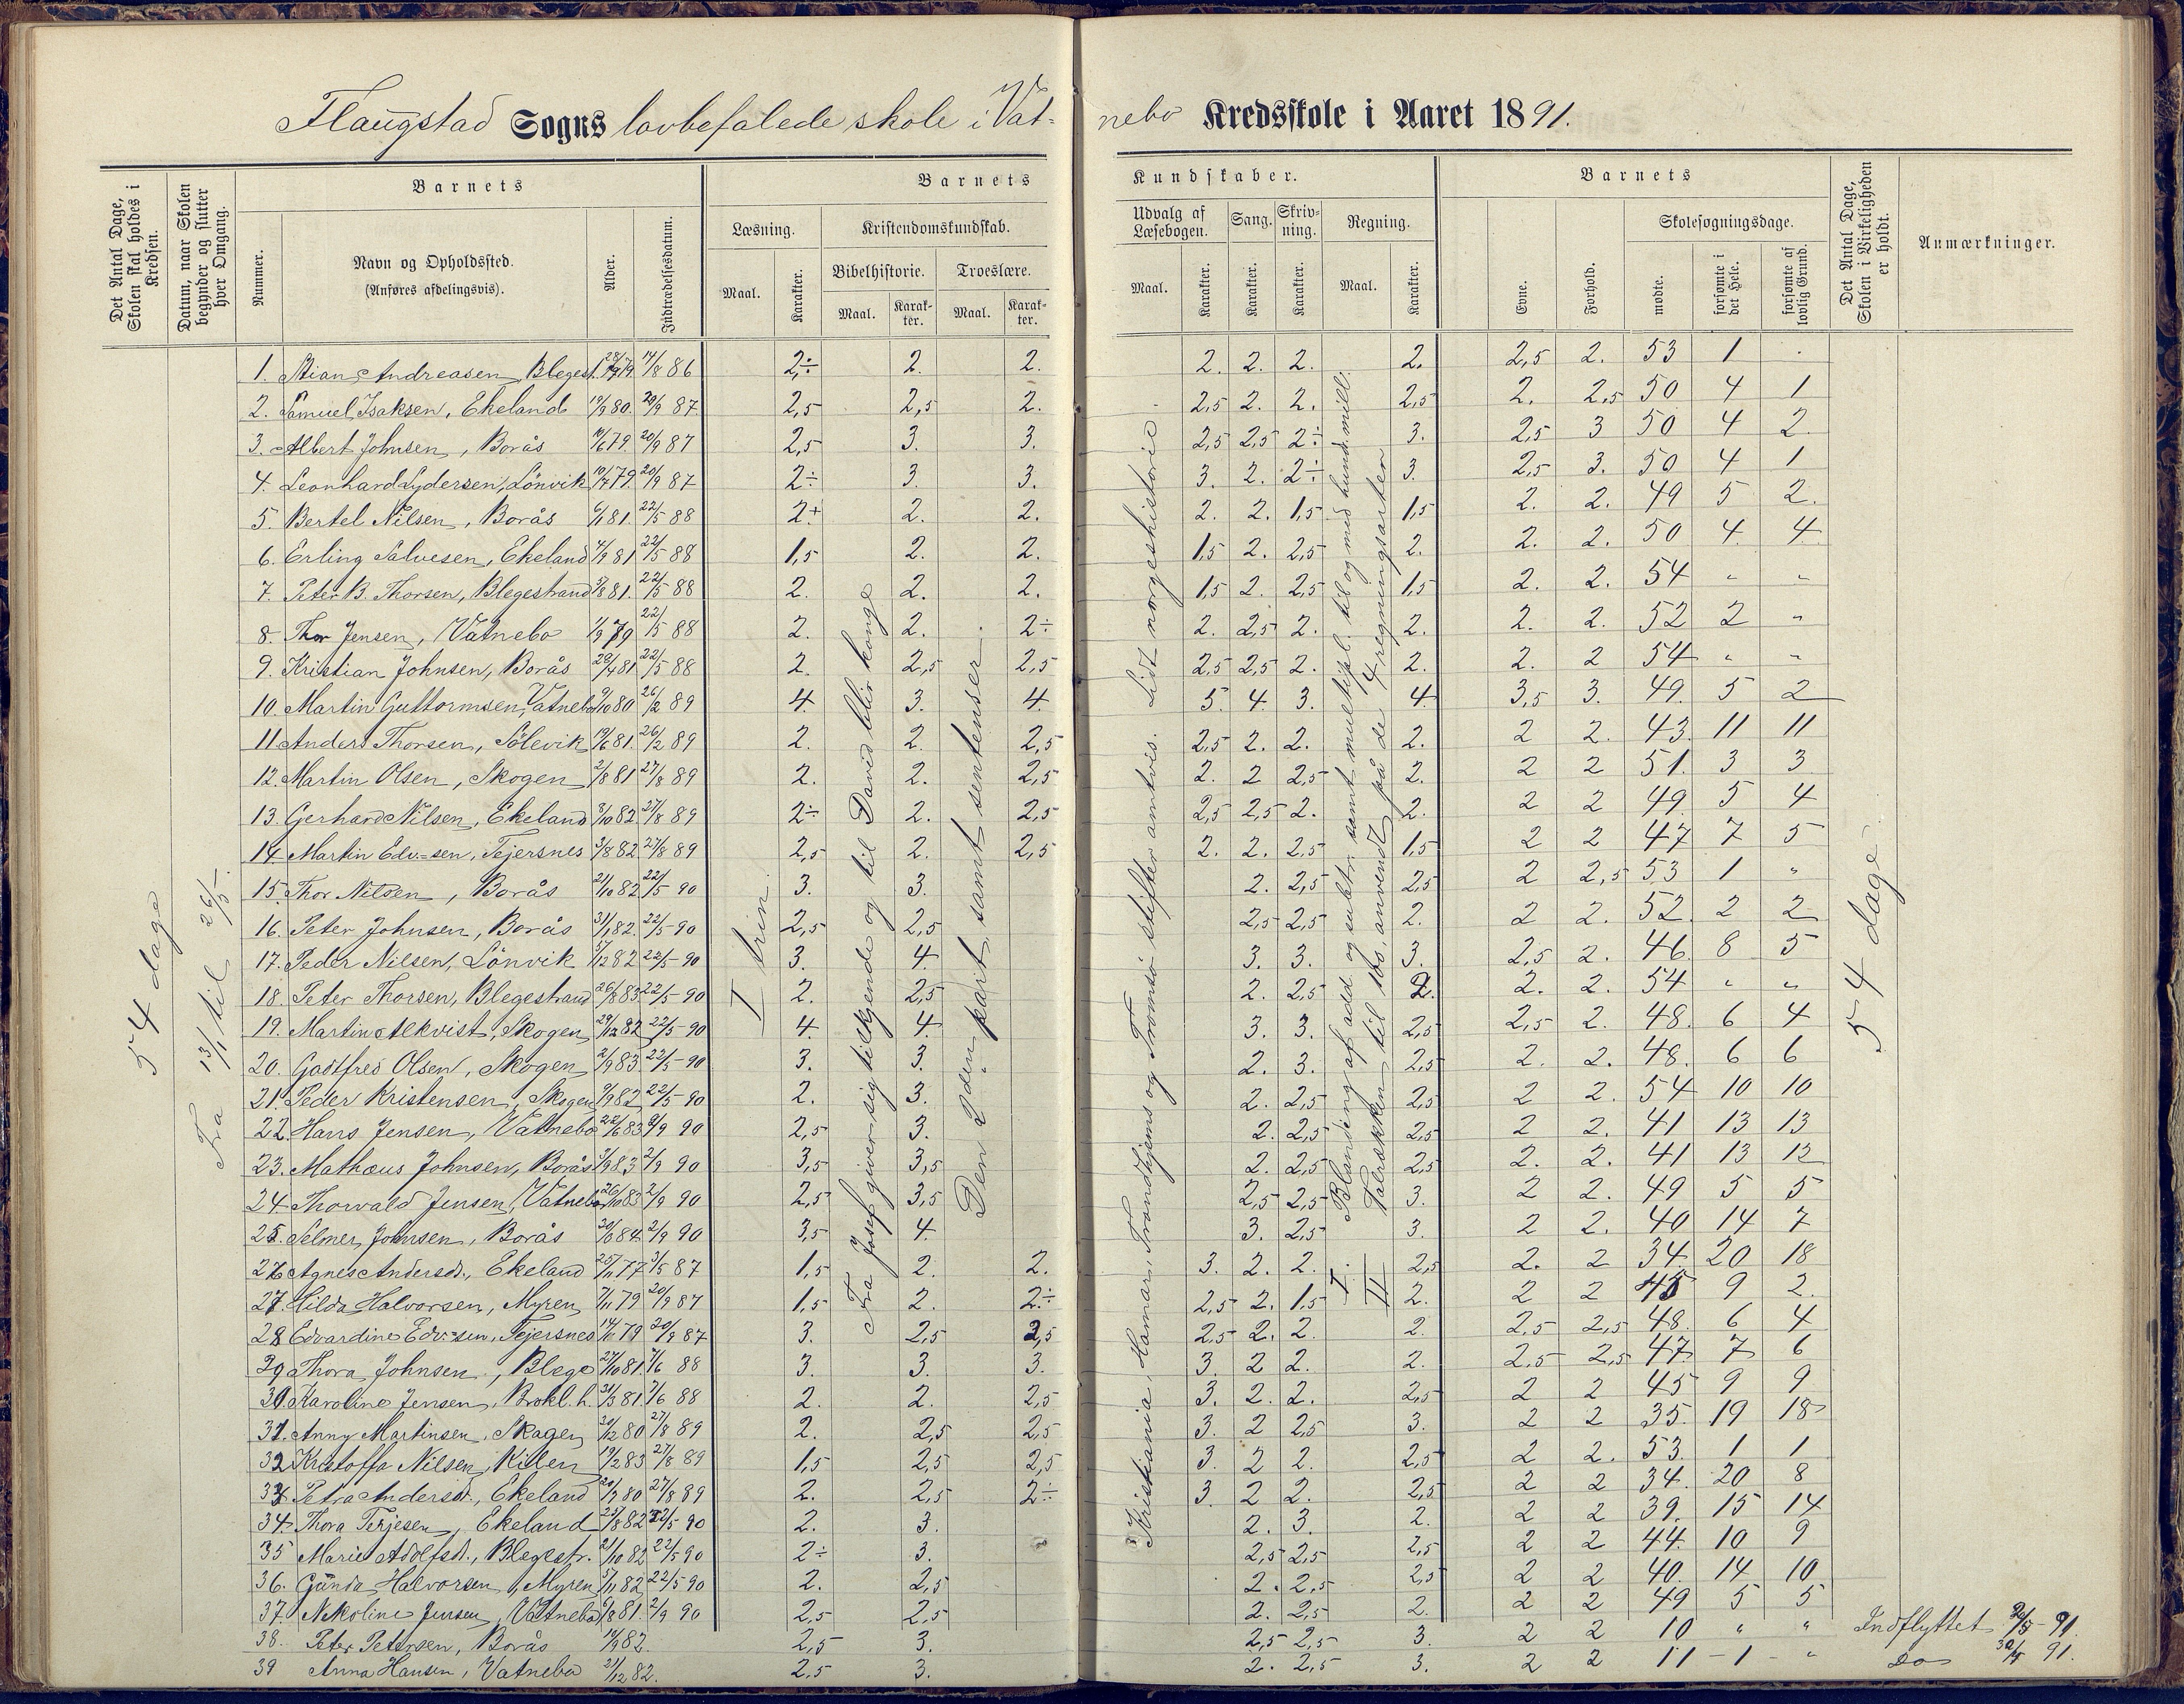 Flaugstad Sogns lovbefalede skole i Vat-
nebo Kredsskole i Aaret 1891.
Det Antal Dage, Skolen skal holdes i Kredsen.
Datum, naar Skolen begynder og slutter hver Omgang.
Barnets
Nummer.
Navn og Opholdssted.
(Anføres afdelingsvis).
Alder.
Indtrædelsesdatum.
Barnets
Læsning.
Kristendomskundskab.
Maal.
Karakter.
Bibelhistorie.
Troeslære.
Maal.
Karakter.
Maal.
Karakter.
Kundskaber.
Udvalg af Læsebogen.
Sang.
Skrivning.
Regning.
Maal.
Karakter.
Karakter.
Karakter.
Maal.
Karakter.
Barnets
Evne.
Forhold.
Skolesøgningsdage.
mødte.
forsømte i det Hele.
forsømte af lovlig Grund.
Det Antal Dage, Skolen i Virkeligheden er holdt.
Anmærkninger.
54 dage
Fra 13/1 til 26/5.
I trin.
Fra Josef giver sig tilkjende og til David blir konge
Den 2den part samt sentenser.
Kristiania, Hamar, Trondhjems og Tromsö stifter antvis. Lidt norgeshistorie
I. Blanding af add. og subtr. samt multipl. til og med hund. mill.
II Talrækken til 100, anvendt på de 4 regningsarter
54 dage
1. Stian Andreasen, Bleges. 14/8 86 2÷ 2. 2. 2. 2. 2. 2. 2,5 2. 53 1 .
2. Samuel Isaksen, Ekeland 19/9 80. 20/9 87 2,5 2,5 2. 2,5 2. 2. 2,5 2. 2,5 50 4 1
3. Albert Johnsen, Borås 10/6 79. 20/9 87 2,5 3. 3. 2,5 2,5 2÷ 3. 2,5 3 50 4 2.
4. Leonhard Lydersen, Lönvik 10/7 79. 20/9 87 2÷ 3. 3. 3. 2. 2÷ 3. 2,5 3. 50 4 1
5. Bertel Nilsen, Borås 6/1 81. 22/5 88 2+ 2. 2. 2. 2. 1,5 1,5 2. 2. 49 5 2.
6. Erling Salvesen, Ekeland 4/9 81 22/5 88 1,5 2. 2. 1,5 2. 2,5 2. 2. 2. 50 4 4
7. Peter B. Thorsen, Blegestrand 5/8 81. 22/5 88 2. 2. 2. 1,5 2. 2,5 1,5 2. 2. 54 " "
8. Thor Jensen, Vatnebo 1/9 79 22/5 88 2. 2. 2÷ 2. 2,5 2. 2. 2. 2. 52 2 "
9. Kristian Johnsen, Borås 29/4 81 22/5 88 2. 2,5 2,5 2,5 2,5 2. 2. 2. 2 54 " "
10. Martin Guttormsen, Vatnebo 9/10 80 26/2 89 4. 3. 4. 5. 4. 3. 4. 3,5 3. 49. 5 2
11 Anders Thorsen, Sölevik 19/6 81. 26/2 89 2. 2. 2,5 2,5 2. 2. 2. 2 2. 43. 11 11
12. Martin Olsen, Skogen 2/8 81 27/8 89 2. 2. 2,5 2. 2 2,5 2. 2 2 51. 3 3
13. Gerhard Nilsen, Ekeland 8/10 82. 27/8 89 2÷ 2. 2,5 2,5 2,5 2. 2. 2 2 49. 5 4
14 Martin Edv=sen, Tejersnes 3/8 82 27/8 89 2,5 2. 2,5 2. 2. 2,5 1,5 2 2 47 7 5
15. Thor Nilsen, Borås 21/10 82 22/5 90 3. 3. 2. 2,5 2,5 2 2,5 53 1 "
16. Peter Johnsen, Borås 31/1 82. 22/5-90 2,5 2,5 2,5 2,5 2. 2 2. 52. 2 2
17. Peder Nilsen, Lönvik 5/12 82 22/5-90 3. 4. 3. 3. 3. 2,5 2. 46. 8 5
18. Peter Thorsen, Blegestrand 26/8 83 22/5-90 2. 2,5 2. 2,5 2. 2. 2. 54 " "
19. Martin Alkvist, Skogen 29/12 82 22/5-90 4. 4. 3. 3. 2,5 2,5 2. 48. 6 4
20. Godtfred Olsen, Skogen 2/9 83 22/5-90 3. 3. 2. 3. 2,5 2. 2. 48. 6 6
21. Peder Kristensen, Skogen 9/9 82 22/5-90 2. 3. 2. 2,5 2,5 2 2. 54 10 10
22. Hans Jensen, Vatnebo 22/6 83 9/9 90 2,5 3. 2. 2,5 2,5 2 2. 41 13 13
23. Mathæus Johnsen, Borås 3/9 83 2/9 90 3,5 3,5 2. 2,5 2,5 2. 2. 41 13 12
24 Thorvald Jensen, Vatnebo 26/10 83 2/9 90 2,5 3,5 2,5 2,5 3. 2 2. 49 5 5
25. Selmer Johnsen, Borås 30/6 84. 2/9 90 3,5 4. 3. 2,5 3. 2 2. 40 14 7
26 Agnes Andersd., Ekeland 25/11 77 3/5 87 1,5 2. 2. 3. 2. 2. 2,5 2. 2 34. 20 18
27. Hilda Halvorsen, Myren 7/11 79 20/9 87 1,5 2. 2÷ 2,5 2. 1,5 2. 2 2 45 9 2.
28 Edvardine Edv=sen, Tejersnes 14/11 79 20/9 87 3. 2,5 2,5 2,5 2. 2. 2. 2,5 2,5 48. 6 4
29 Thora Johnsen, Blege 27/10 81. 7/6 88 3. 3. 3. 3. 2 2. 2. 2,5 2,5 47. 7 6
30. Karoline Jensen, Brokl. h. 31/3 81. 7/6 88 2. 2. 2,5 3. 2. 2. 2,5 2 2 45 9 9
31. Anny Martinsen, Skagen 20/12 80 27/8 89 2. 2,5 2,5 3. 2 2,5 3. 2 2 35. 19 18
32 Kristoffa Nilsen, Kilen 19/2 83 27/8 89 1,5 2,5 2,5 3. 2 2. 2,5 2 2. 53. 1 1
33 Petra Andersd., Ekeland 20/7 80 27/8 89 2. 2,5 2÷ 3. 2 2. 2,5 2 2 34. 20 8
34. Thora Terjesen, Ekeland 25/8 82 22/5 90 2. 3. 2. 3. 2. 2 2 39. 15 14
35 Marie Adolfsd., Blegestr. 21/10 82 22/5 90 2÷ 3. 2,5 2,5 2,5 2 2 44. 10 9
36. Gunda Halvorsen, Myren 5/11 82 22/5 90 2. 2,5 2. 2,5 2,5 2 2 40. 14 10
37. Nikoline Jensen, Vatnebo 6/8 81. 2/9 90 2,5 2,5 2. 2,5 2. 2 2 49 5 5
38. Peter Petersen, Borås 10/9 82. 2,5 3. 2,5 2,5 3. 2 2 10 " " Indflyttet 91.
39 Anna Hansen, Vatnebo 21/12 82. 2,5 3. 2. 2,5 3. 2 2 11 - 1 - " Do 91.